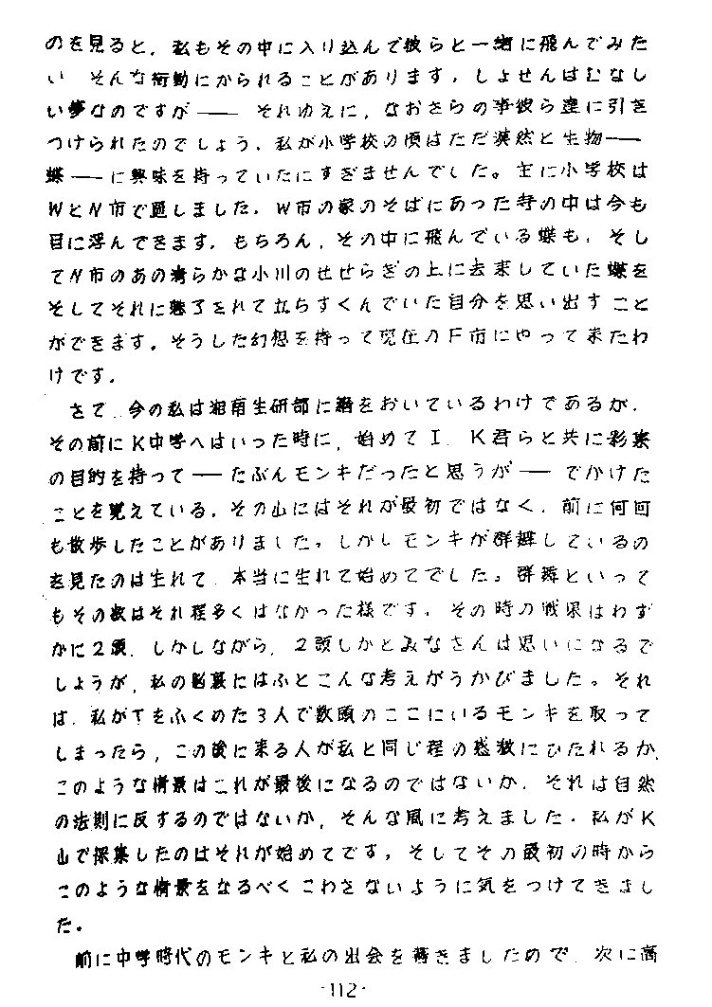 のを見ると、私もその中に入り込んで彼らと一緒に飛んでみた
い そんな衝動にかられることがあります。しょせんはむなし
い夢なのですが―― それゆえに、なおさらの事彼ら達に引き
つけられたのでしょう。私が小学校の頃はただ漠然と生物――
蝶――に興味を持っていたにすぎませんでした。主に小学校は
WとN市で過しました。W市の家のそばにあった寺の中は今も
目に浮んできます。もちろん、その中に飛んでいる蝶も、そし
てN市のあの清らかな小川のせせらぎの上に去来していた蝶を
そしてそれに魅了されて立ちすくんでいた自分を思い出すこと
ができます。そうした幻想を持って現在のF市にやって来たわ
けです。
さて 今の私は湘南生研部に籍をおいているわけであるが、
その前にK中学へはいった時に、始めてI K君らと共に彩集
の目的を持って――たぶんモンキだったと思うが―― でかけた
ことを覚えている。その山にはそれが最初ではなく、前に何回
も散歩したことがありました。しかしモンキが群舞しているの
を見たのは生れて 本当に生れて始めてでした。群舞といって
もその数はそれ程多くはなかった様です。その時の戦果はわず
かに2頭、しかしながら、2頭しかとみなさんは思いになるで
しょうが、私の脳裏にはふとこんな考えがうかびました。それ
は、私がTをふくめた3人で数頭のここにいるモンキを取って
しまったら、この後に来る人が私と同じ程の感激にひたれるか、
このような情景はこれが最後になるのではないか、それは自然
の法則に反するのではないか、そんな風に考えました。私がK
山で採集したのはそれが始めてです。そしてその最初の時から
このような情景をなるべくこわさないように気をつけてきまし
た。
前に中学時代のモンキと私の出会を書きましたので、次に高
-112-